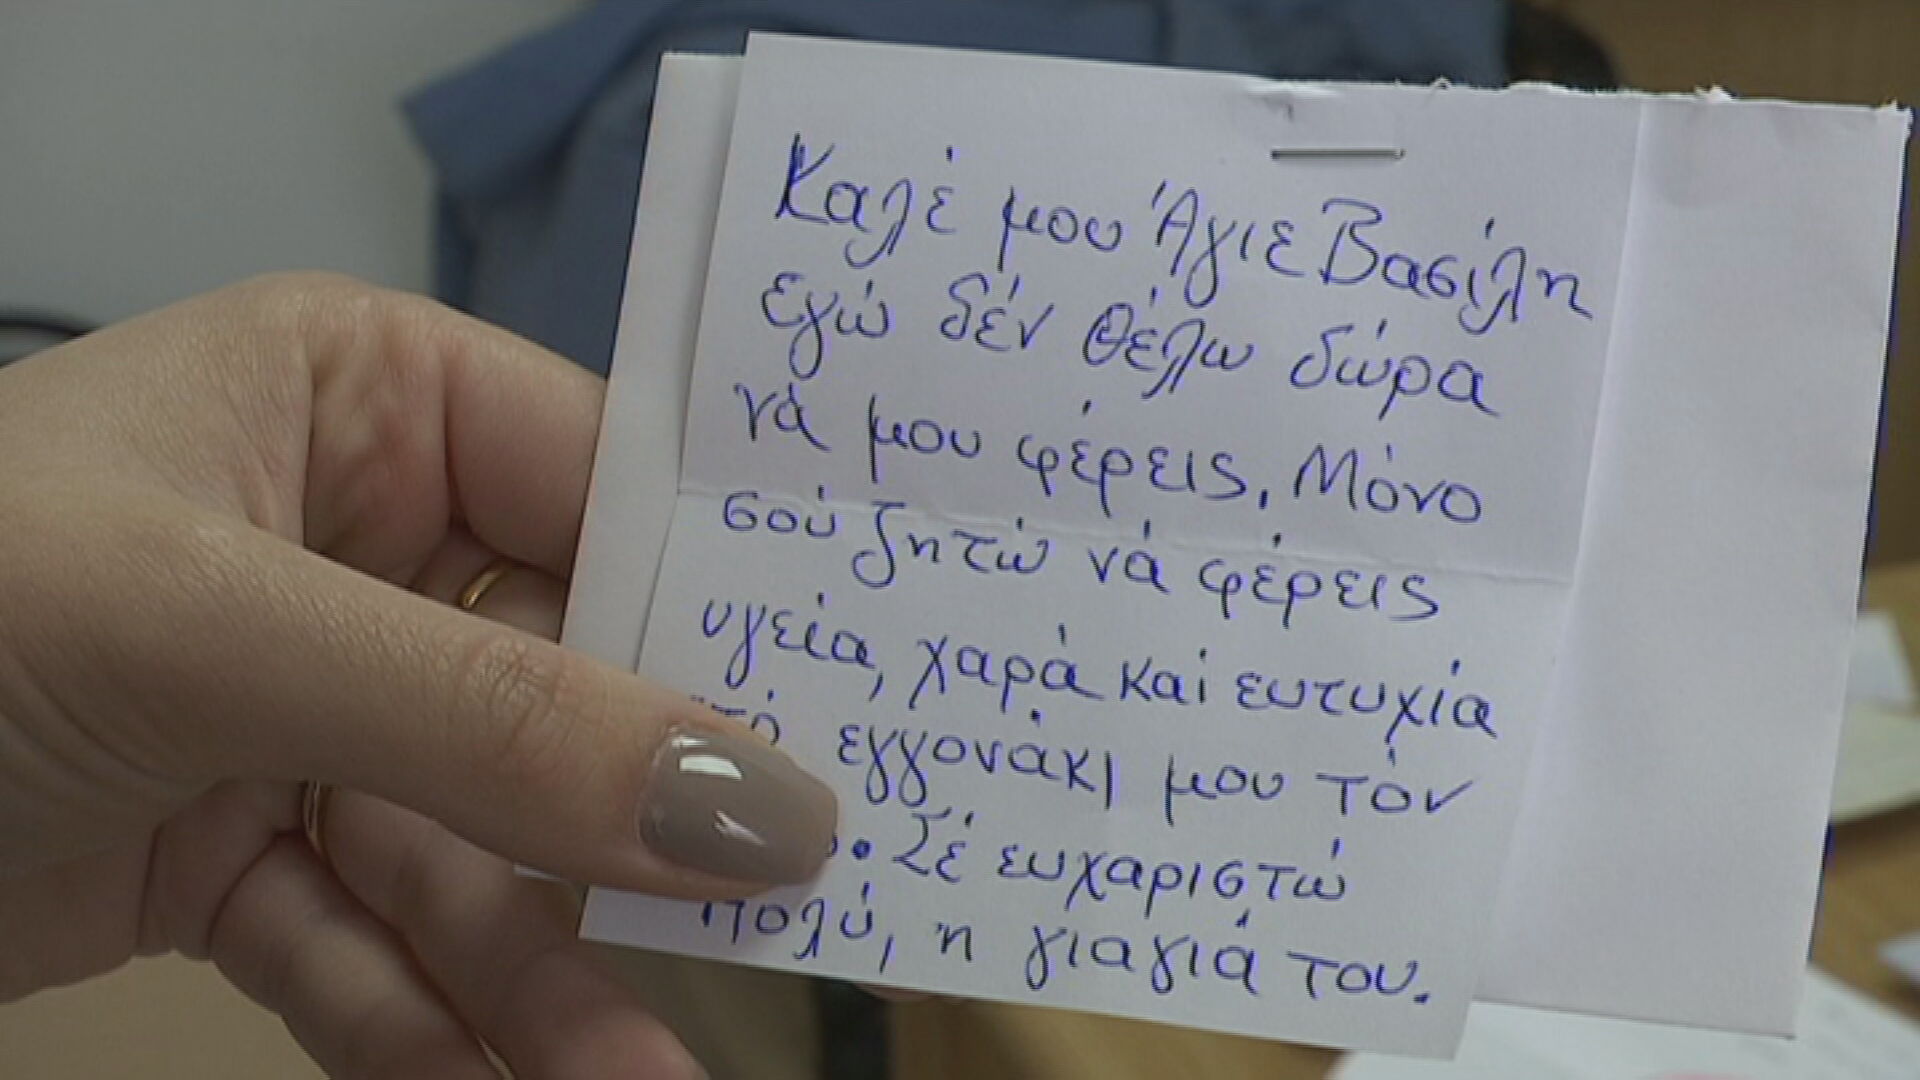 Καλέ μου Άγιε Βασίλη
εγώ δέν θέλω δώρα
νά μου φέρεις, Μόνο
σού ζητώ νά φέρεις
υγεία, χαρά και ευτυχία
εγγονάκι μου τόν
Σέ ευχαριστώ
πολύ, η γιαγιά του.